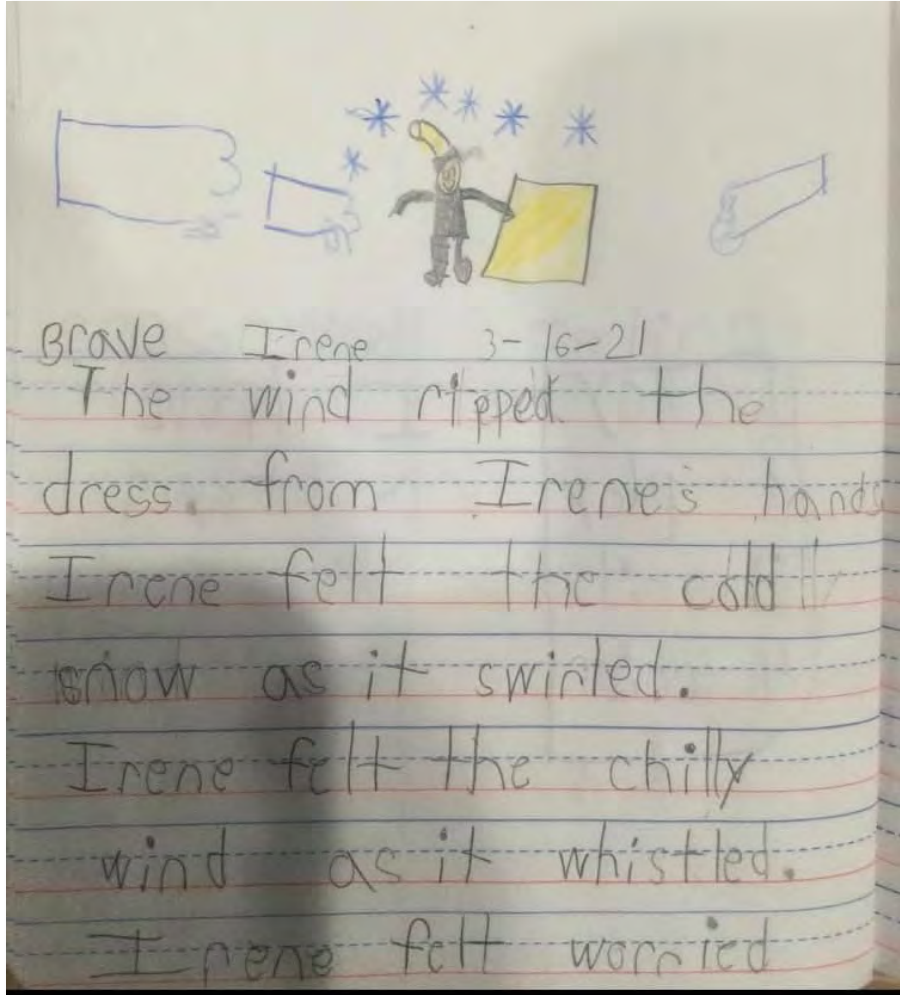 Brave Irene 3-16-21
The wind ripped the
dress. from Irene's hands
Irene felt the cold
snow as it swirled.
Irene felt the chilly
wind as it whistled.
Irene felt worried